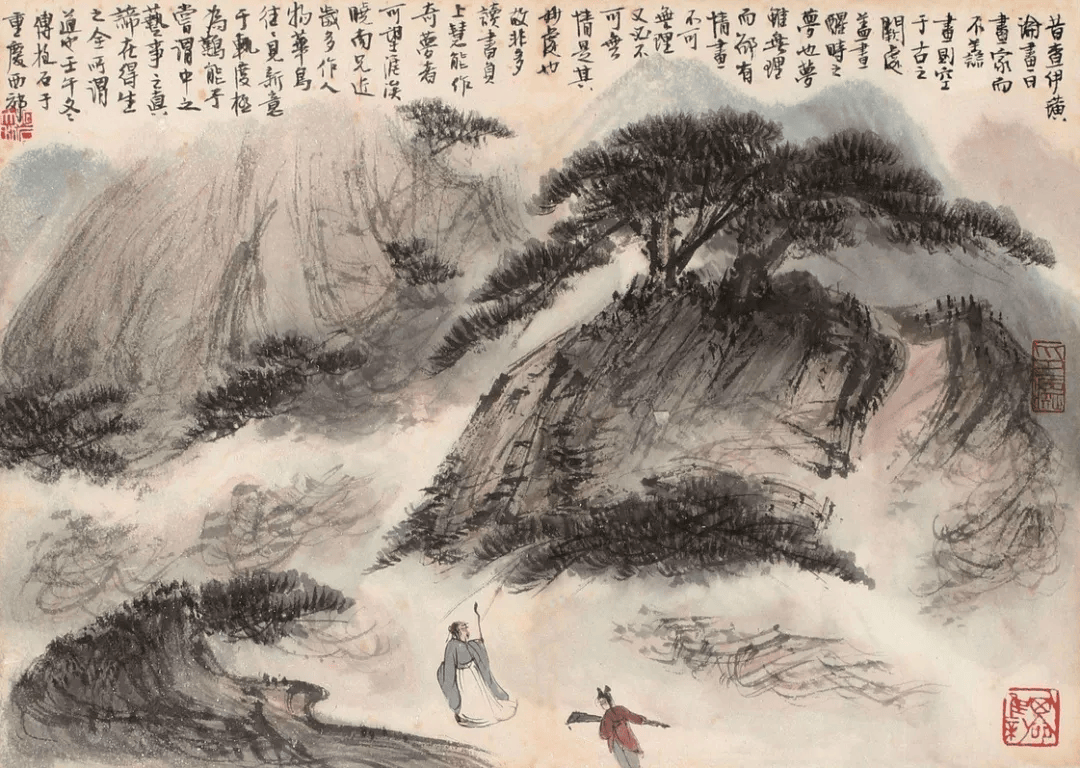 昔查伊璜
論畫曰
畫家而
不善
畫則空
于古之
闕處
蓋畫
醒時之
夢也夢
雖無理
而卻有
情畫
不可
無理
又必不
可無
情是其
妙處也
故非多
讀書負
上慧能作
奇夢者
可望涯涘
曉南兄近
歲多作人
物華鳥
往往見新意
于軌度極
為能予
嘗謂中之
藝事之真
諦在得生
之全所謂
道也壬午冬
傅抱石于
重慶西郊